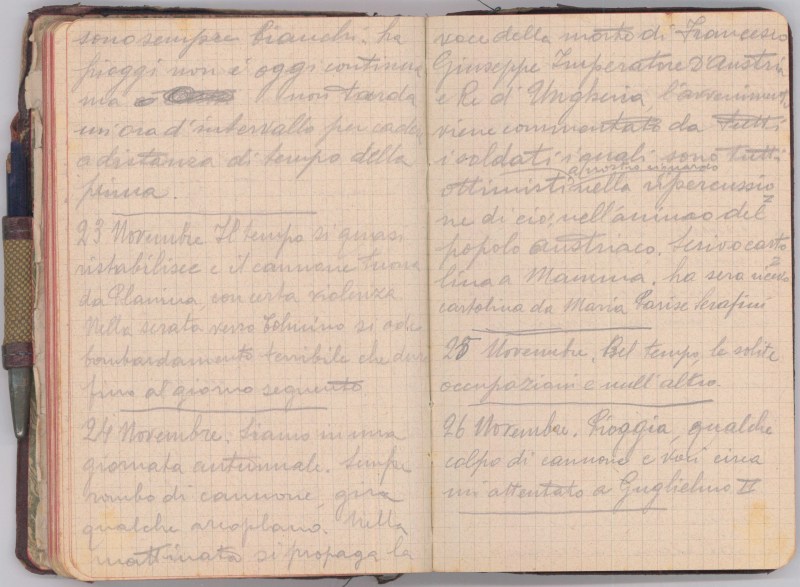 sono sempre bianchi. ha
pioggi non è oggi continua
ma non tarda
un'ora d'intervallo per cader
a distanza di tempo della
prima.
23 Novembre Il tempo si quasi
ristabilisce e il cannone tuona
da Planina, con certa violenza
Nella serata verso Tolmino si ode
bombardamento terribile che dura
fino al giorno seguento
24 Novembre. Siamo in una
giornata autunnale. Sempre
rombo di cannone, gira
qualche aroplano. Nella
mattinata si propaga la
voce della morte di Francesco
Giuseppe Imperatore D'Austria
e Re d'Ungheria, l'avvenimento
viene commentato da tutti
i soldati i quali sono tutti
a nostro riguardo
ottimisti nella ripercussio
ne di ciò, nell'animo del
popolo austriaco. Scrivo carto
lina a Mamma, ha sera ricevo
cartolina da Maria Parise Serafini
25 Novembre. Bel tempo, le solite
occupazioni e null'altro.
26 Novembre. Pioggia, qualche
colpo di cannone e voci circa
un attentato a Guglielmo II